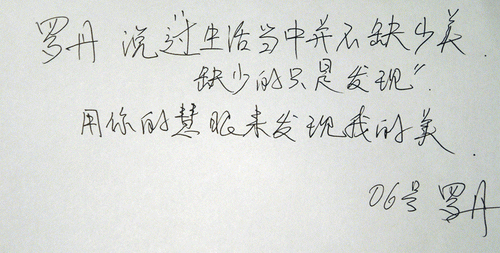 罗丹 说过生活当中并不缺少美.
缺少的只是发现”.
用你的慧眼来发现我的美.
06号 罗丹